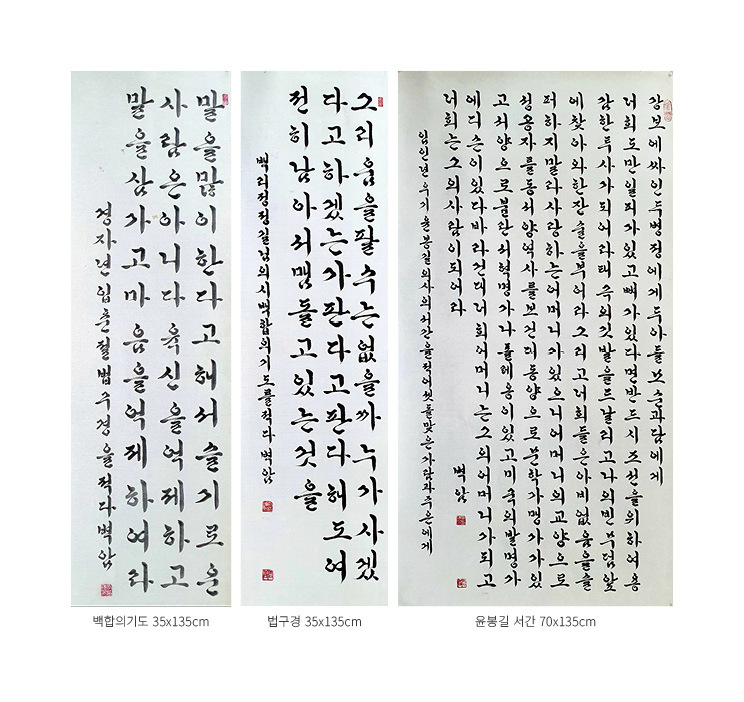 말을많이한다고해서슬기로운
사람은아니다육신을억제하고
말을삼가고마음을억제하여라
경자년입춘절법구경을적다벽암
그리움을팔수는없을까누가사겠
다고하겠는가판다고판다해도여
전히남아서맴돌고있는것을
의시백합의기도를적다벽암
강보에싸인두병정에게두아들모순과담에게
너희도만일피가있고뼈가있다면반드시조선을위하여용
감한투사가되어라태극의깃발을드날리고나의빈무덤앞
에찾아와한잔술을부어라그리고너희들은아비없음을슬
퍼하지말라사랑하는어머니가있으니어머니의교양으로
성공자를동서양역사를보건대동양으로문학가맹가가있
고서양으로불란서혁명가나폴레옹이있고미국의발명가
에디슨이있다바라건대너희어머니는그의어머니가되고
너희는그의사람이되어라
임인년우기윤봉길의사의서간을적어셋돌맞은가람과주은에게
벽암
백합의기도 35x135cm
법구경 35x135cm
윤봉길 서간 70x135cm